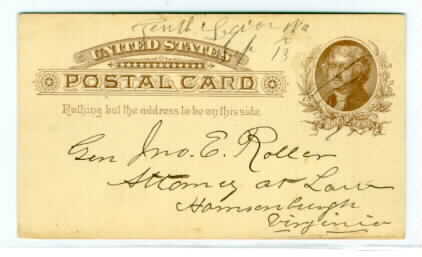 Tenth Legion Va
UNITED STATES
13
POSTAL CARD
Nothing but the address to be on this side.
Gen Jno. E. Roller
Attorney at Law
Harrisonburgh
Virginia